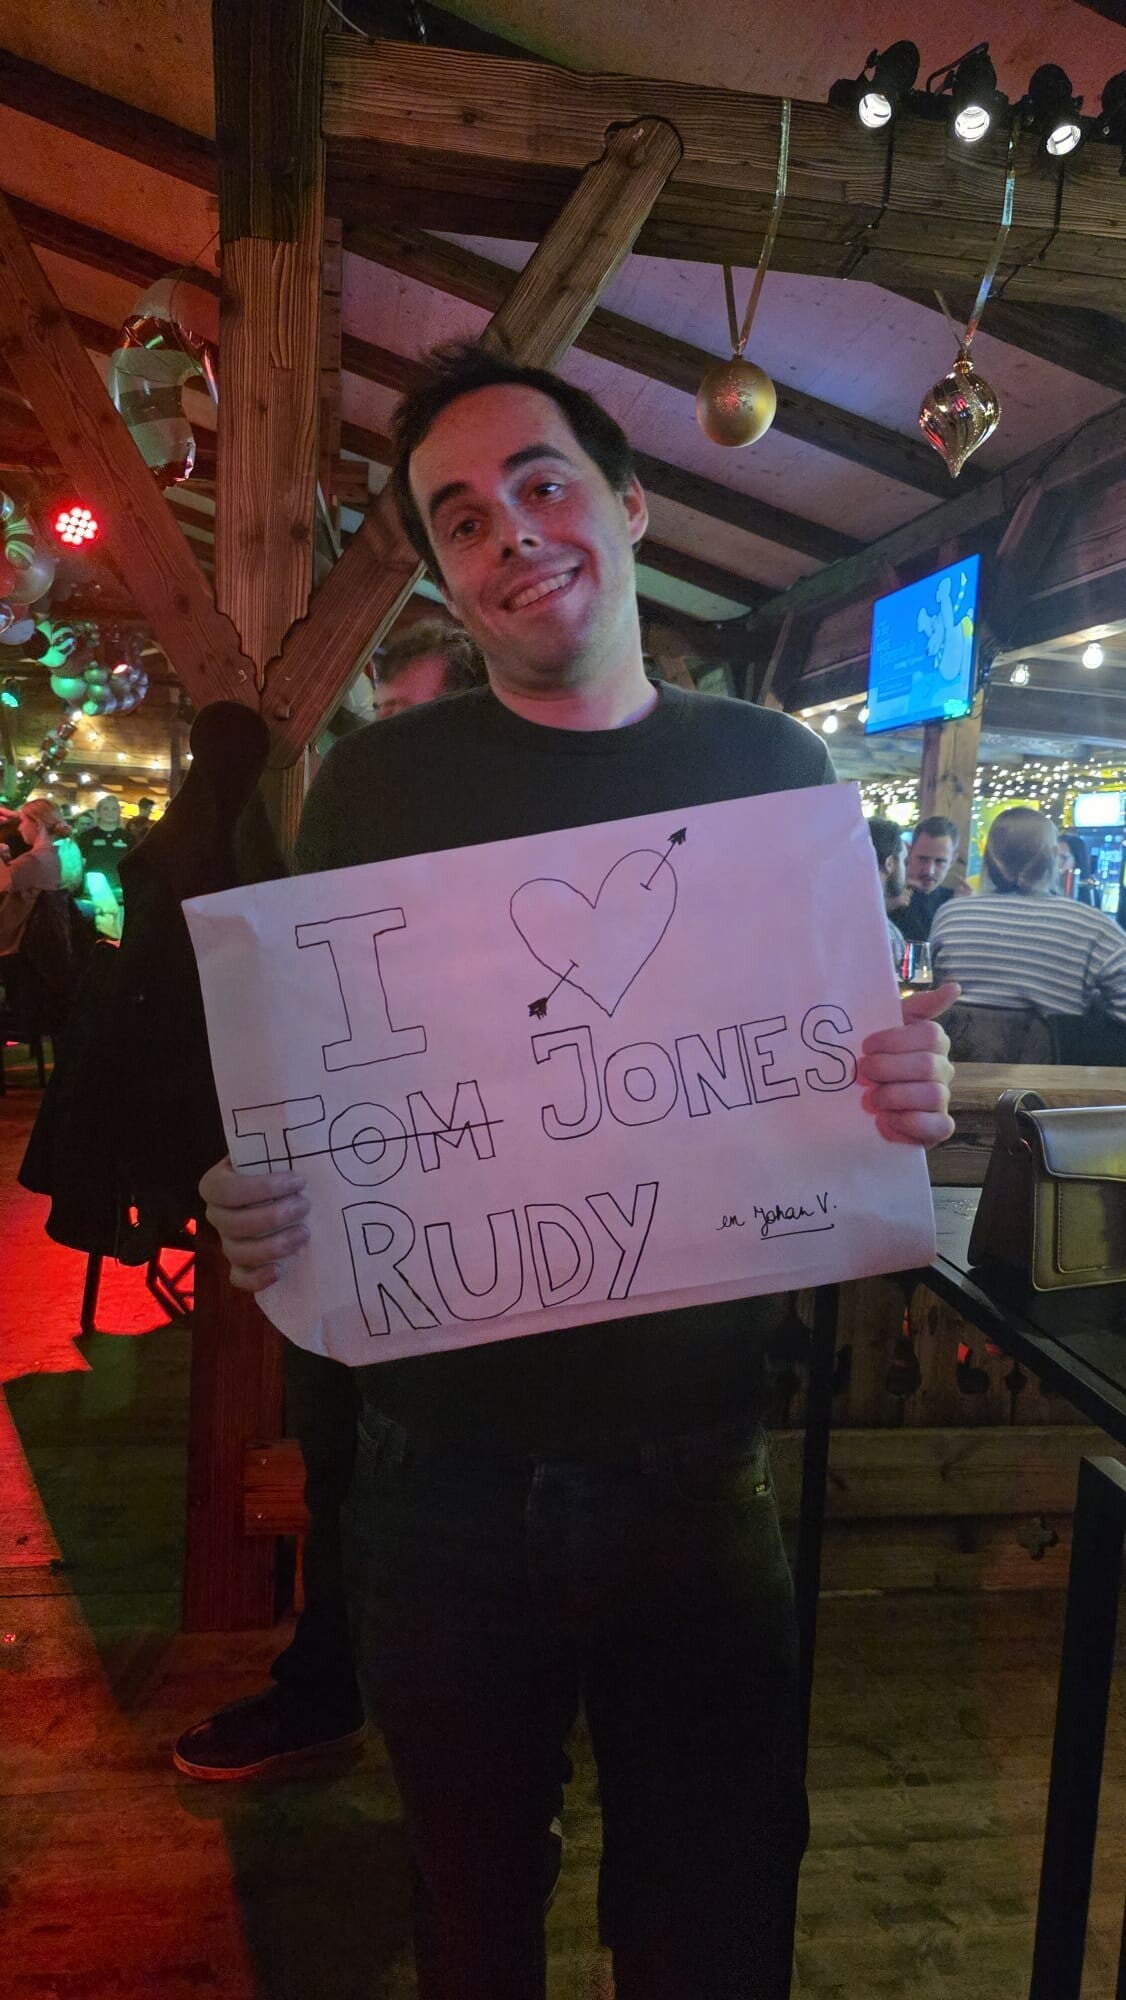 I
TOM JONES
RUDY
en Johan V.